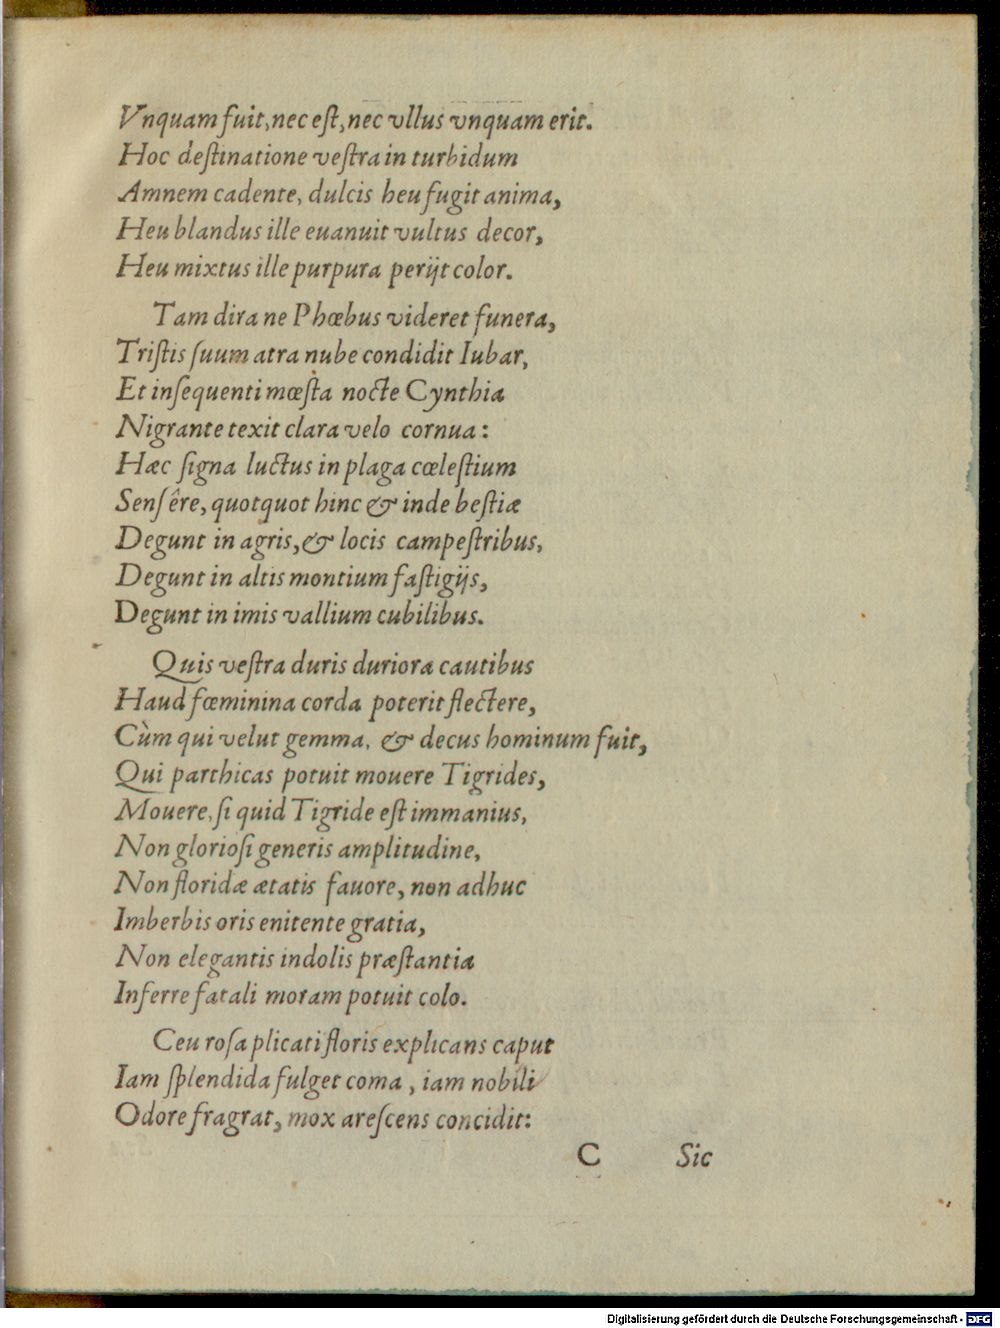 Vnquam fuit, nec est, nec vllus vnquam erit.
Hoc destinatione vestra in turbidum
Amnem cadente, dulcis heu fugit anima,
Heu blandus ille euanuit vultus decor,
Heu mixtus ille purpura perijt color.
Tam dira ne Phœbus videret funera,
Tristis suum atra nube condidit Iubar,
Et insequenti mœsta nocte Cynthia
Nigrante texit clara velo cornua:
Hæc signa luctus in plaga cœlestium
Sensêre, quotquot hinc & inde bestiæ
Degunt in agris, & locis campestribus,
Degunt in altis montium fastigijs,
Degunt in imis vallium cubilibus.
Quis vestra duris duriora cautibus
Haud fœminina corda poterit flectere,
Cùm qui velut gemma, & decus hominum fuit,
Qui parthicas potuit mouere Tigrides,
Mouere, si quid Tigride est immanius,
Non gloriosi generis amplitudine,
Non floridæ ætatis fauore, non adhuc
Imberbis oris enitente gratia,
Non elegantis indolis præstantia
Inferre fatali moram potuit colo.
Ceu rosa plicati floris explicans caput
Iam splendida fulget coma, iam nobili
Odore fragrat, mox arescens concidit:
C Sic
Digitalisierung gefördert durch die Deutsche Forschungsgemeinschaft - DFG